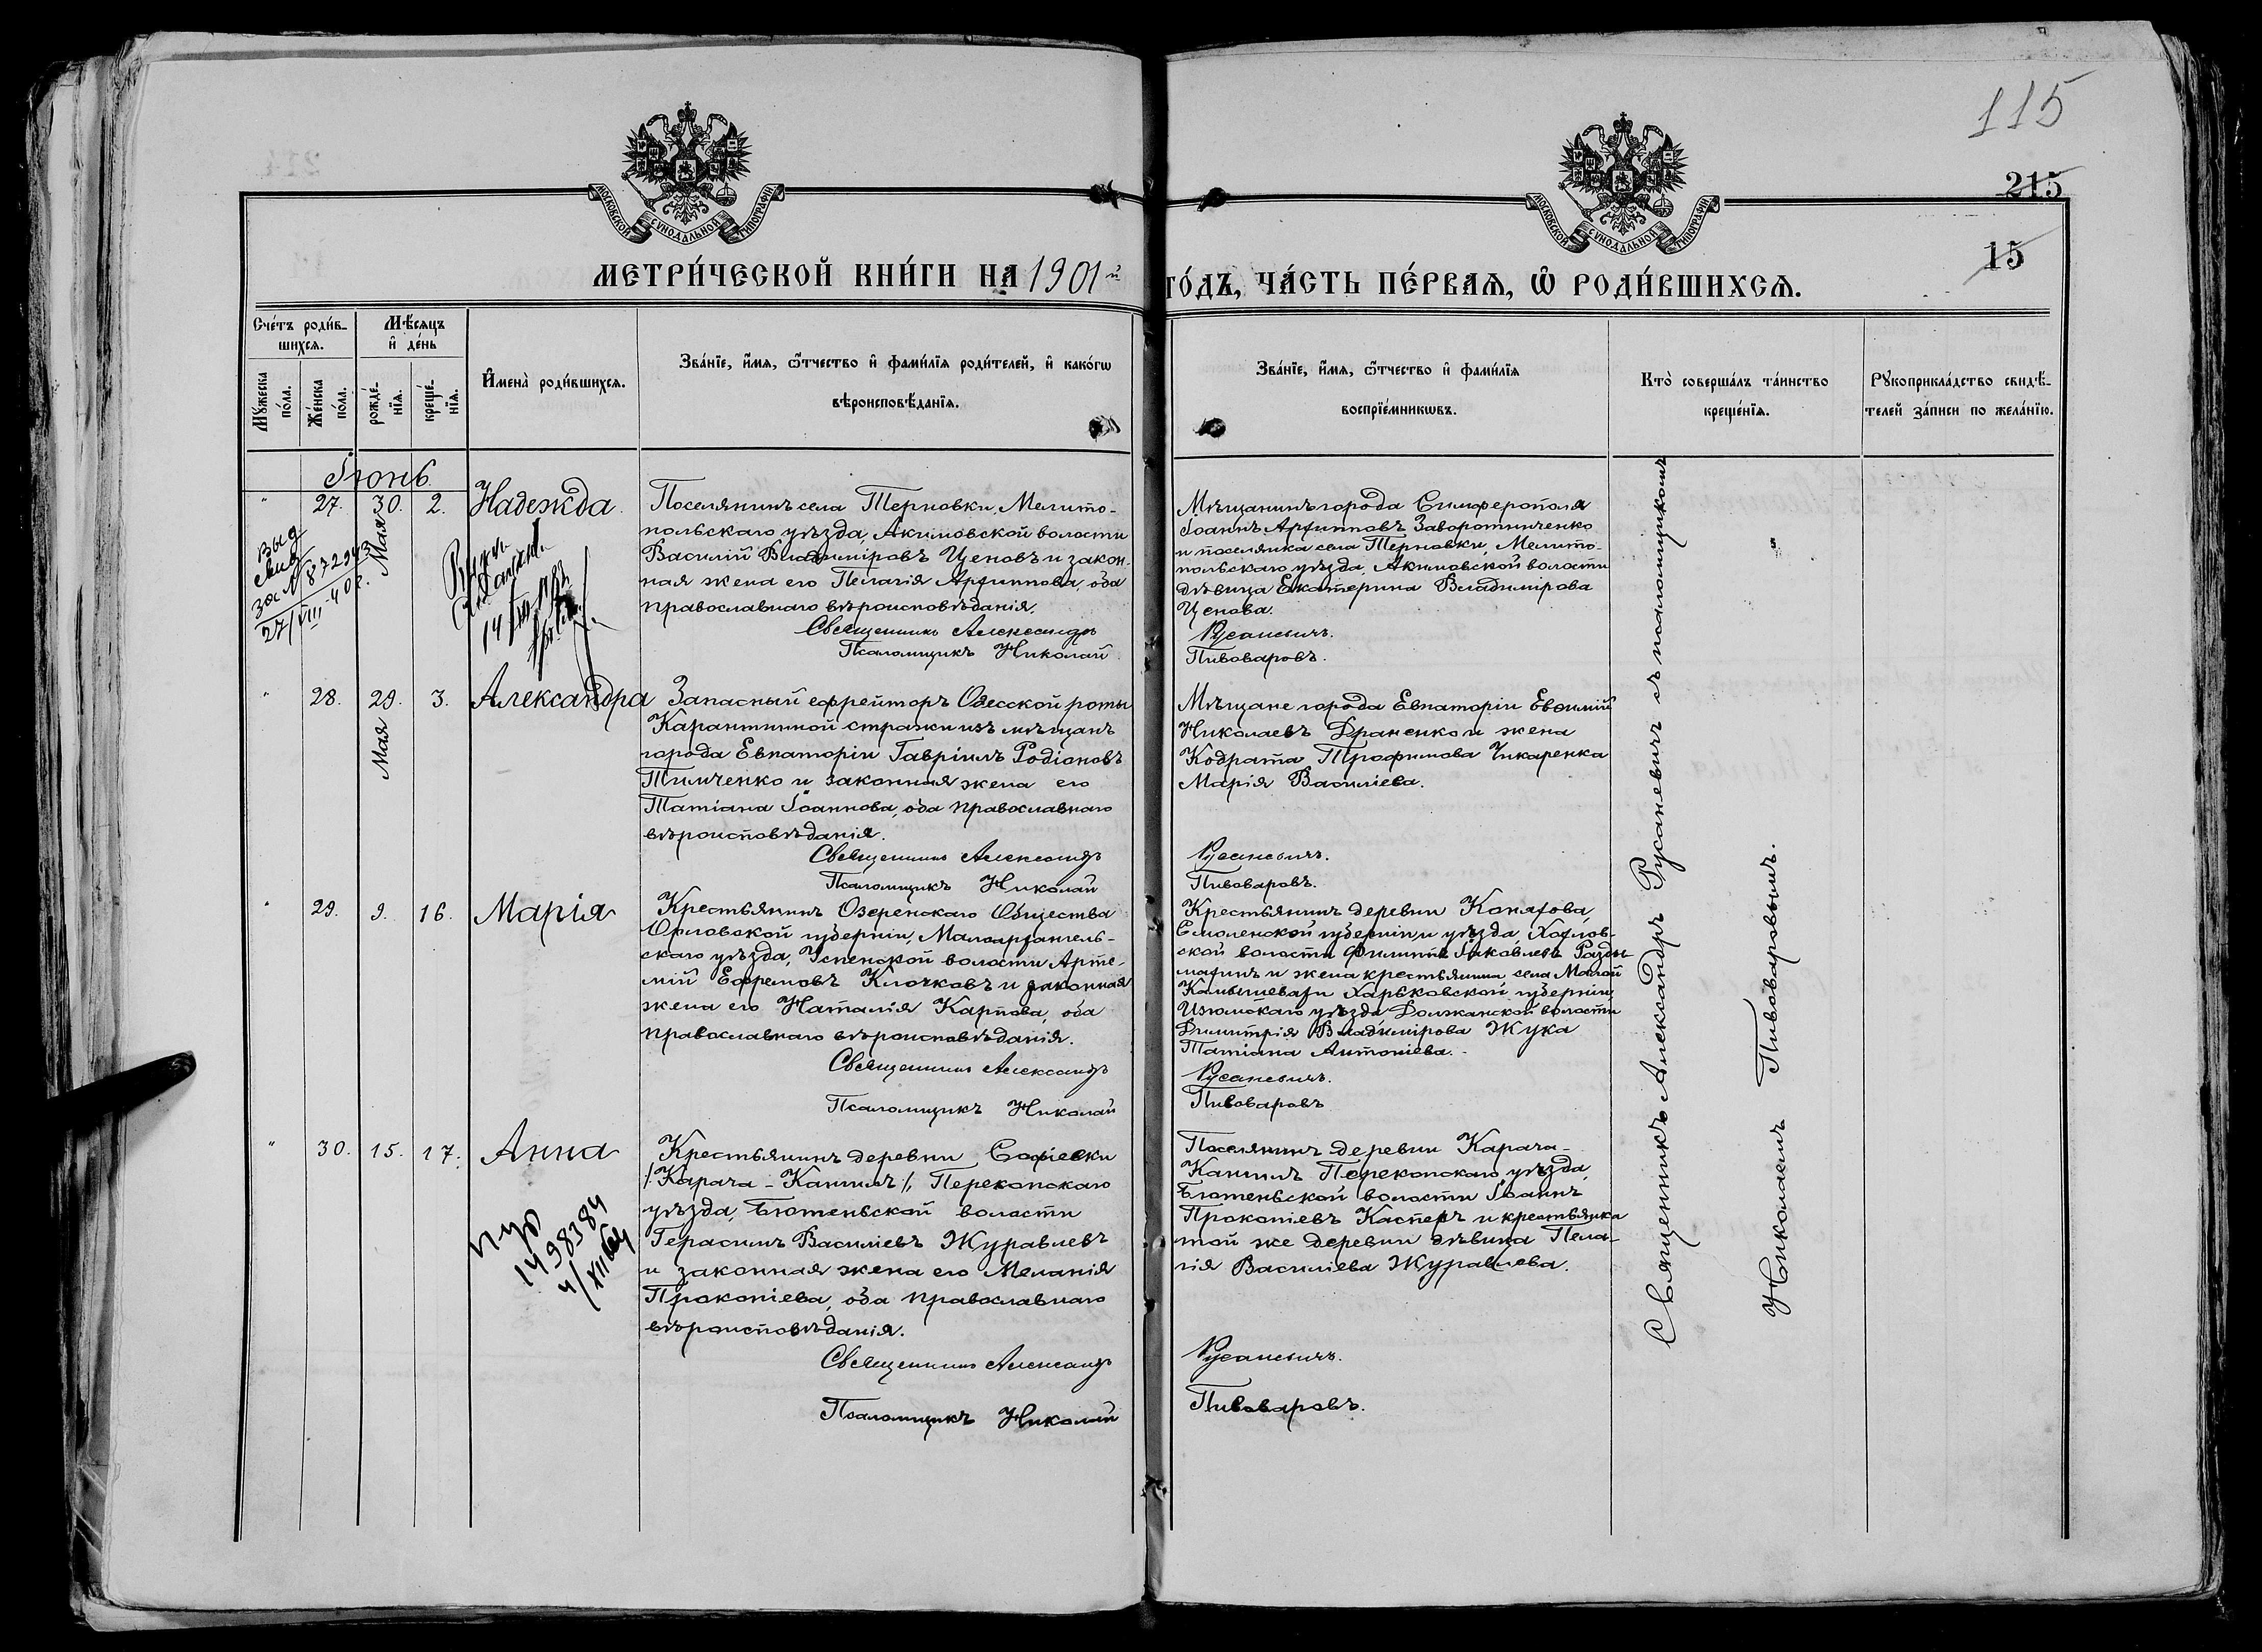 115
215
15
МОСКОВСКОЙ СѴНОДАЛЬНОЙ ТИПОГРАФІИ
МОСКОВСКОЙ СѴНОДАЛЬНОЙ ТИПОГРАФІИ
МЕТРИ́ЧЕСКОЙ КНИ́ГИ НА 1901й
ГО́ДЪ, ЧА́СТЬ ПЕ́РВАѦ, Ѡ҆ РОДИ́ВШИХСѦ.
Сче́тъ роди́в-
шихсѧ.
Мѣ́сѧцъ
и҆ де́нь
Мꙋ́жеска
по́ла.
Же́нска
по́ла.
рожде́-
нїѧ.
креще́-
нїѧ.
И҆мена̀ роди́вшихсѧ.
Зва́нїе, и҆́мѧ, ѻ҆́тчество и҆ фами́лїѧ роди́телей, и҆ како́гѡ
вѣроисповѣ́данїѧ.
Зва́нїе, и҆́мѧ, ѻ҆́тчество и҆ фами́лїѧ
воспрїе́мникѡвъ.
Кто̀ соверша́лъ та́инство
креще́нїѧ.
Рꙋкоприкла́дство свидѣ́-
телей за́писи по жела́нїю.
Іюнь
" 27. 30. 2. Надежда.
Мая
Выд
свид
за № 872943
27/VIII-40г.
Поселянинъ села Терновки, Мелито-
польскаго уѣзда, Акимовской волости
Василій Владиміровъ Ценовъ и закон-
ная жена его Пелагія Архиппова, оба
православнаго вѣроисповѣданія.
Священникъ Александръ
Псаломщикъ Николай
Мѣщанинъ города Симферополя
Іоаннъ Архипповъ Заворотинченко
и поселянка села Терновки, Мелито-
польскаго уѣзда, Акимовской волости
дѣвица Екатерина Владимірова
Ценова.
Русаневичъ.
Пивоваровъ.
" 28. 29. 3. Александра
Мая
Запасный ефрейторъ Одесской роты
Карантинной стражи изъ мѣщанъ
города Евпаторіи Гавріилъ Родіоновъ
Тимченко и законная жена его
Татіана Іоаннова, оба православнаго
вѣроисповѣданія.
Священникъ Александръ
Псаломщикъ Николай
Мѣщане города Евпаторіи Евѳимій
Николаевъ Драненко и жена
Кодрата Трофимова Чикаренка
Марія Василіева.
Русаневичъ.
Пивоваровъ.
" 29. 9. 16. Марія
Крестьянинъ Озеренскаго Общества
Орловской губерніи, Малоархангель-
скаго уѣзда, Успенской волости Арте-
мій Ефремовъ Клочковъ и законная
жена его Наталія Карпова, оба
православнаго вѣроисповѣданія.
Священникъ Александръ
Псаломщикъ Николай
Крестьянинъ деревни
Смоленской губерніи и уѣзда, Хохлов-
ской волости Филиппъ Іаковлевъ
и жена крестьянина села Малой
Камышевахи Харьковской губерніи,
Изюмскаго уѣзда Должанской волости
Димитрія Владимірова Жука
Татіана Антоніева.
Русаневичъ.
Пивоваровъ
" 30. 15. 17. Анна
1498384
Крестьянинъ деревни Софіевки
/Карача-Кангилъ/, Перекопскаго
уѣзда, Бютеньской волости
Герасимъ Василіевъ Журавлевъ
и законная жена его Меланія
Прокопіева, оба православнаго
вѣроисповѣданія.
Священникъ Александръ
Псаломщикъ Николай
Поселянинъ деревни Карача-
Кангилъ Перекопскаго уѣзда,
Бютеньской волости Іоаннъ
Прокопіевъ Касперъ и крестьянка
той же деревни дѣвица Пела-
гія Василіева Журавлева.
Русаневичъ.
Пивоваровъ.
Священникъ Александръ Русаневичъ съ псаломщикомъ
Николаемъ Пивоваровымъ.